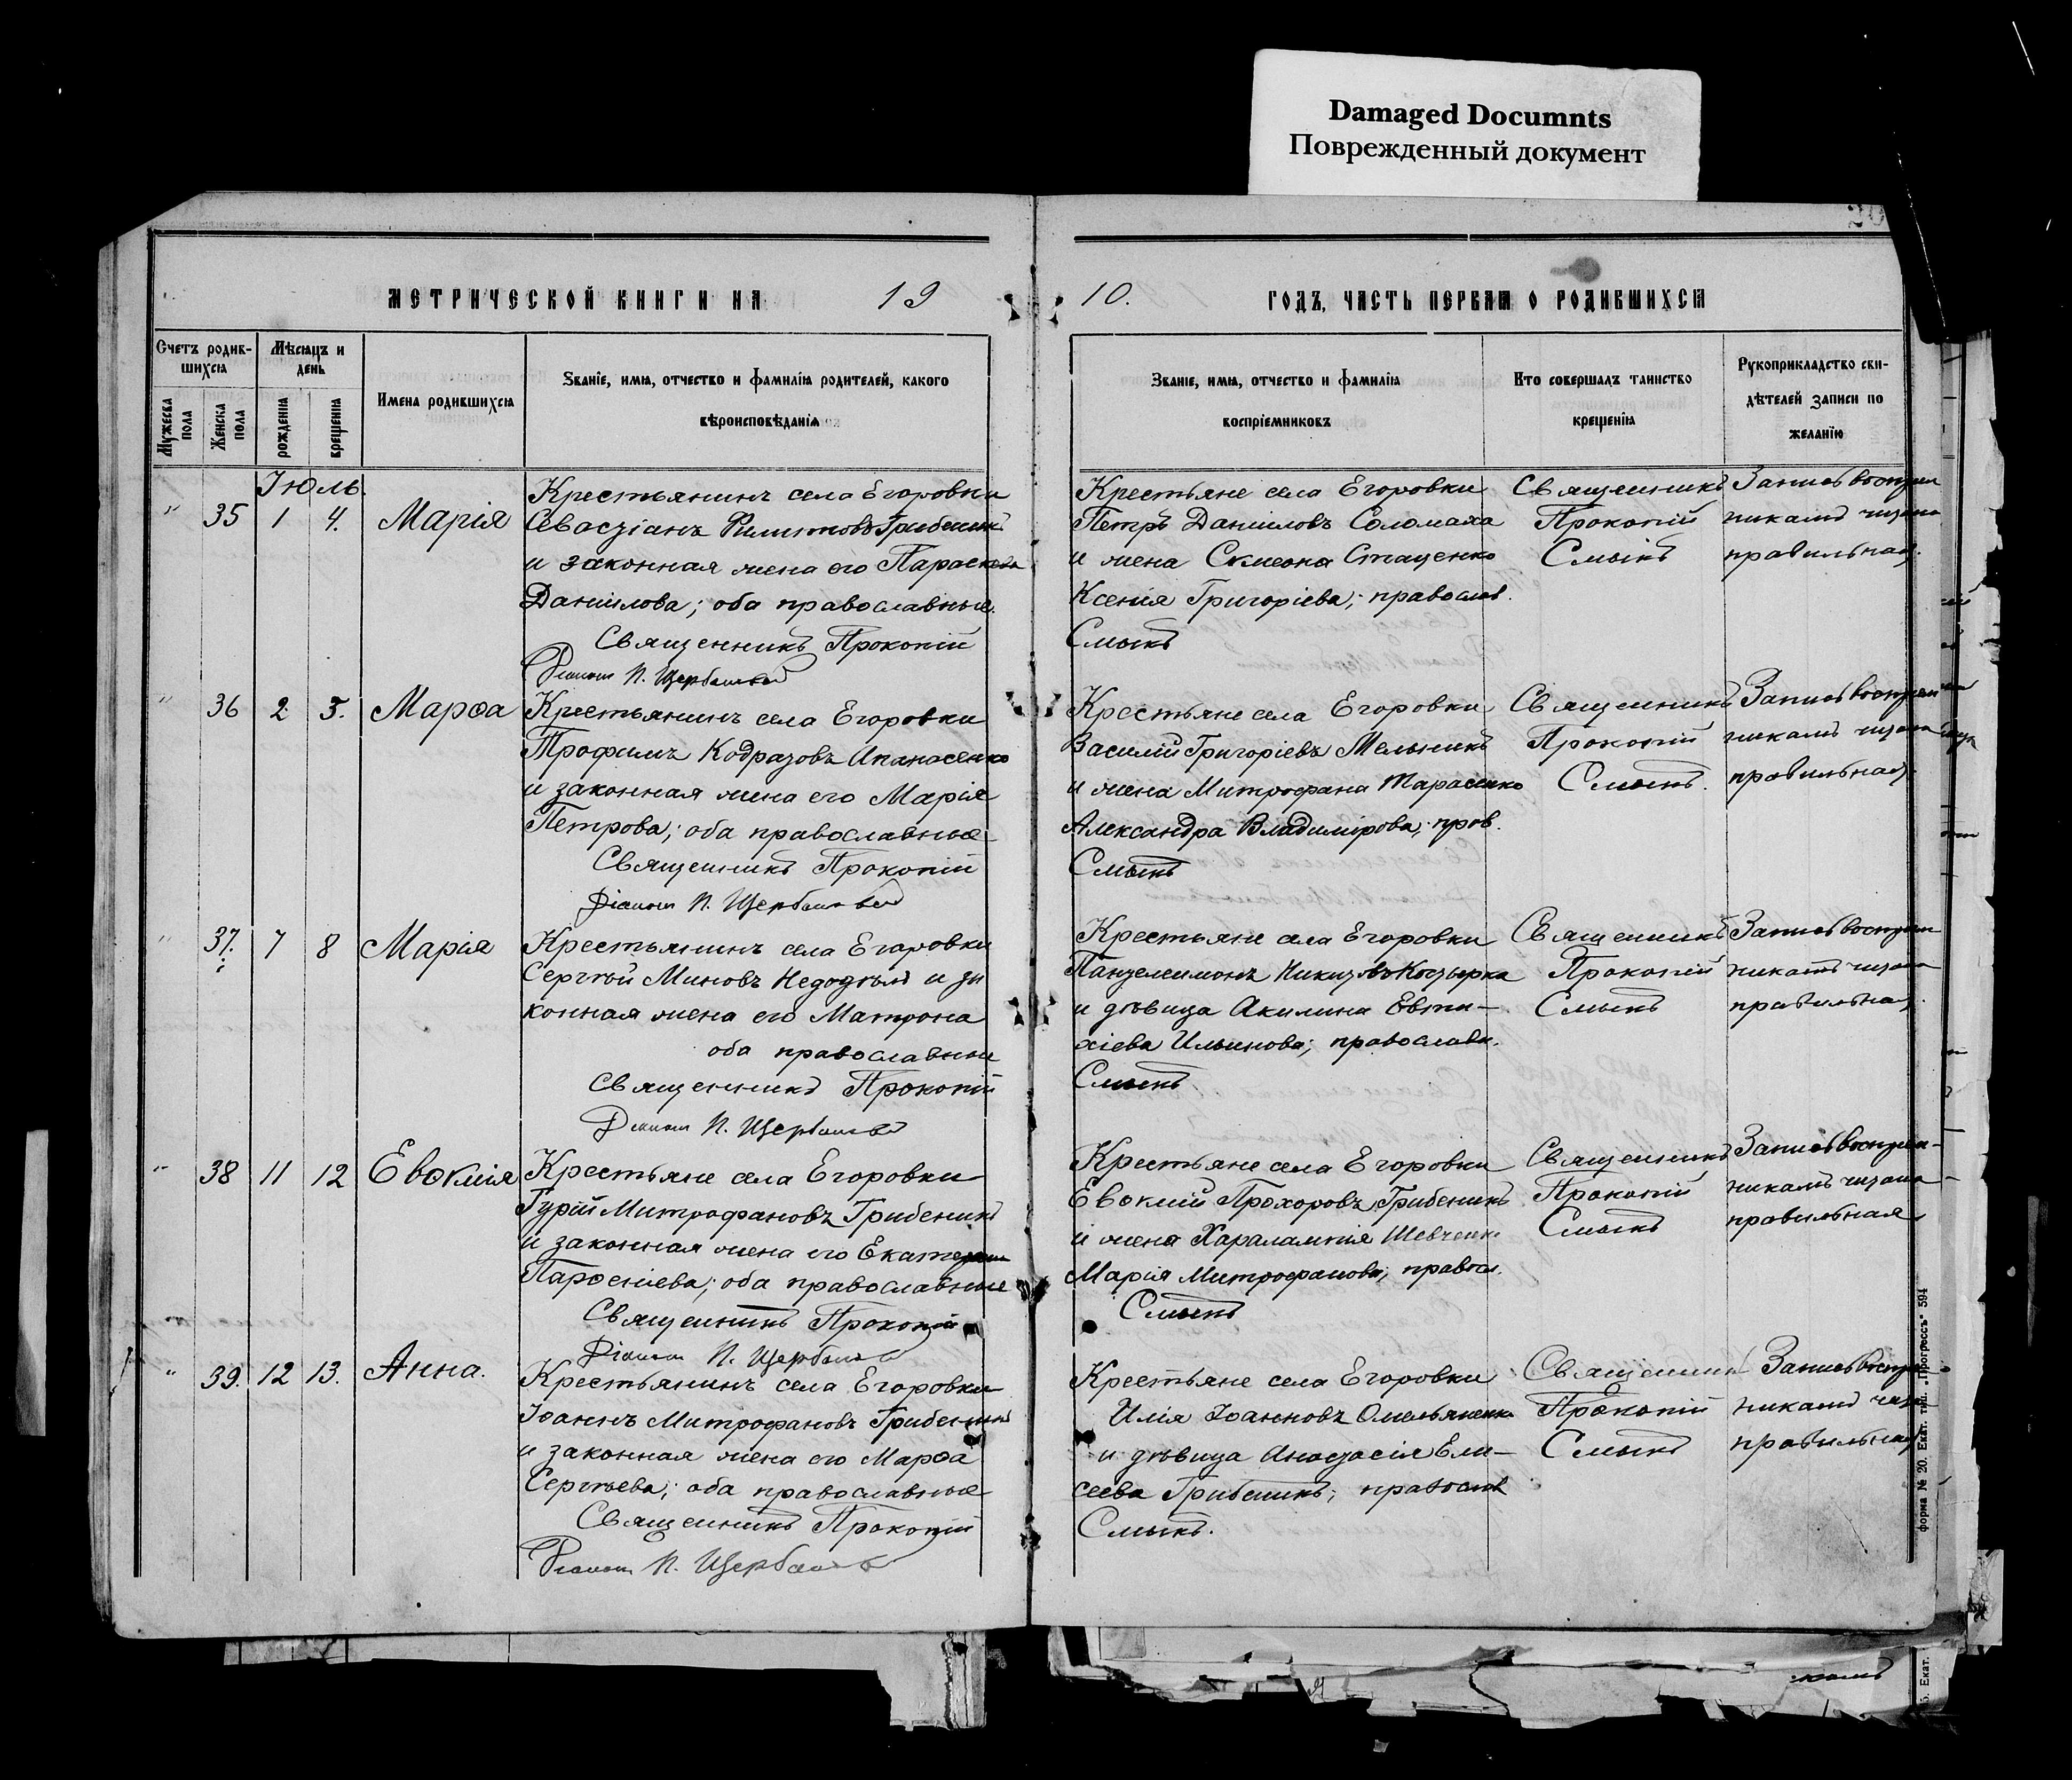 Damaged Documnts
Поврежденный документ
МЕТРИЧЕСКОЙ КНИГИ НА 19
10. ГОДЪ, ЧАСТЬ ПЕРВАЯ О РОДИВШИХСЯ
Счетъ родив-
шихся
Мужеска пола
Женска пола
Мѣсяцъ и
день
рожденія
крещенія
Имена родившихся
Званіе, имя, отчество и фамилія родителей, какого
вѣроисповѣданія
Званіе, имя, отчество и фамилія
воспріемниковъ
Кто совершалъ таинство
крещенія
Рукоприкладство сви-
дѣтелей записи по
желанію
Іюль.
" 35 1 4. Марія
Крестьянинъ села Егоровки
Севастіанъ Грибеникъ
и законная жена его Параскева
Даніилова; оба православные.
Священникъ Прокопій
Діаконъ П.
Крестьяне села Егоровки
Петръ Даніиловъ Соломаха
и жена Симеона Стаценко
Ксенія Григоріева; православ.
Смыкъ
Священникъ
Прокопій
Смыкъ
Запись воспріем
никамъ читана
правильная.
" 36 2 5. Марѳа
Крестьянинъ села Егоровки
Трофимъ Кодратовъ Апанасенко
и законная жена его Марія
Петрова; оба православные
Священникъ Прокопій
Діаконъ П.
Крестьяне села Егоровки
Василій Григоріевъ Мельникъ
и жена Митрофана Тарасенко
Александра Владимірова; прав.
Смыкъ
Священникъ
Прокопій
Смыкъ.
Запись воспріем
никамъ читана
правильная.
" 37. 7 8 Марія
Крестьянинъ села Егоровки
Сергѣй Миновъ и за
конная жена его Матрона
оба православные
Священникъ Прокопій
Діаконъ П.
Крестьяне села Егоровки
Пантелеимонъ Никитовъ Козырка
и дѣвица Акилина Евти-
хіева Ильинова; православн.
Смыкъ.
Священникъ
Прокопій
Смыкъ
Запись воспріем
никамъ читана
правильная.
" 38 11 12 Евѳимія
Крестьяне села Егоровки
Гурій Митрофановъ Грибеникъ
и законная жена его Екатерина
Парѳеніева; оба православные
Священникъ Прокопій
Діаконъ П.
Крестьяне села Егоровки
Евѳимій Прохоровъ Грибеникъ
и жена Харалампія Шевченко
Марія Митрофанова; правосл.
Смыкъ
Священникъ
Прокопій
Смыкъ
Запись воспріем-
никамъ читана
правильная
" 39. 12 13. Анна.
Крестьянинъ села Егоровки
Іоаннъ Митрофановъ Грибеникъ
и законная жена его Марѳа
Сергѣева; оба православные
Священникъ Прокопій
Діаконъ П.
Крестьяне села Егоровки
Илія Іоанновъ Омельяненко
и дѣвица Анастасія Ели-
сеева Грибеникъ; православ
Смыкъ.
Священникъ
Прокопій
Смыкъ
Запись воспріе-
никамъ читана
правильная
форма № 20. Екат. тип. „Прогрессъ" 594